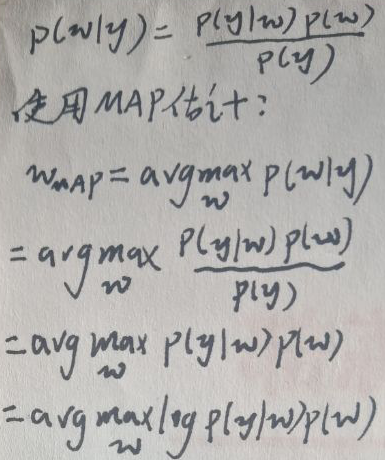 p(w|y) = p(y|w) p(w) / p(y)
使用MAP估计:
w_MAP = argmax_w p(w|y)
= argmax_w p(y|w) p(w) / p(y)
= arg max_w p(y|w) p(w)
= arg max_w log p(y|w) p(w)